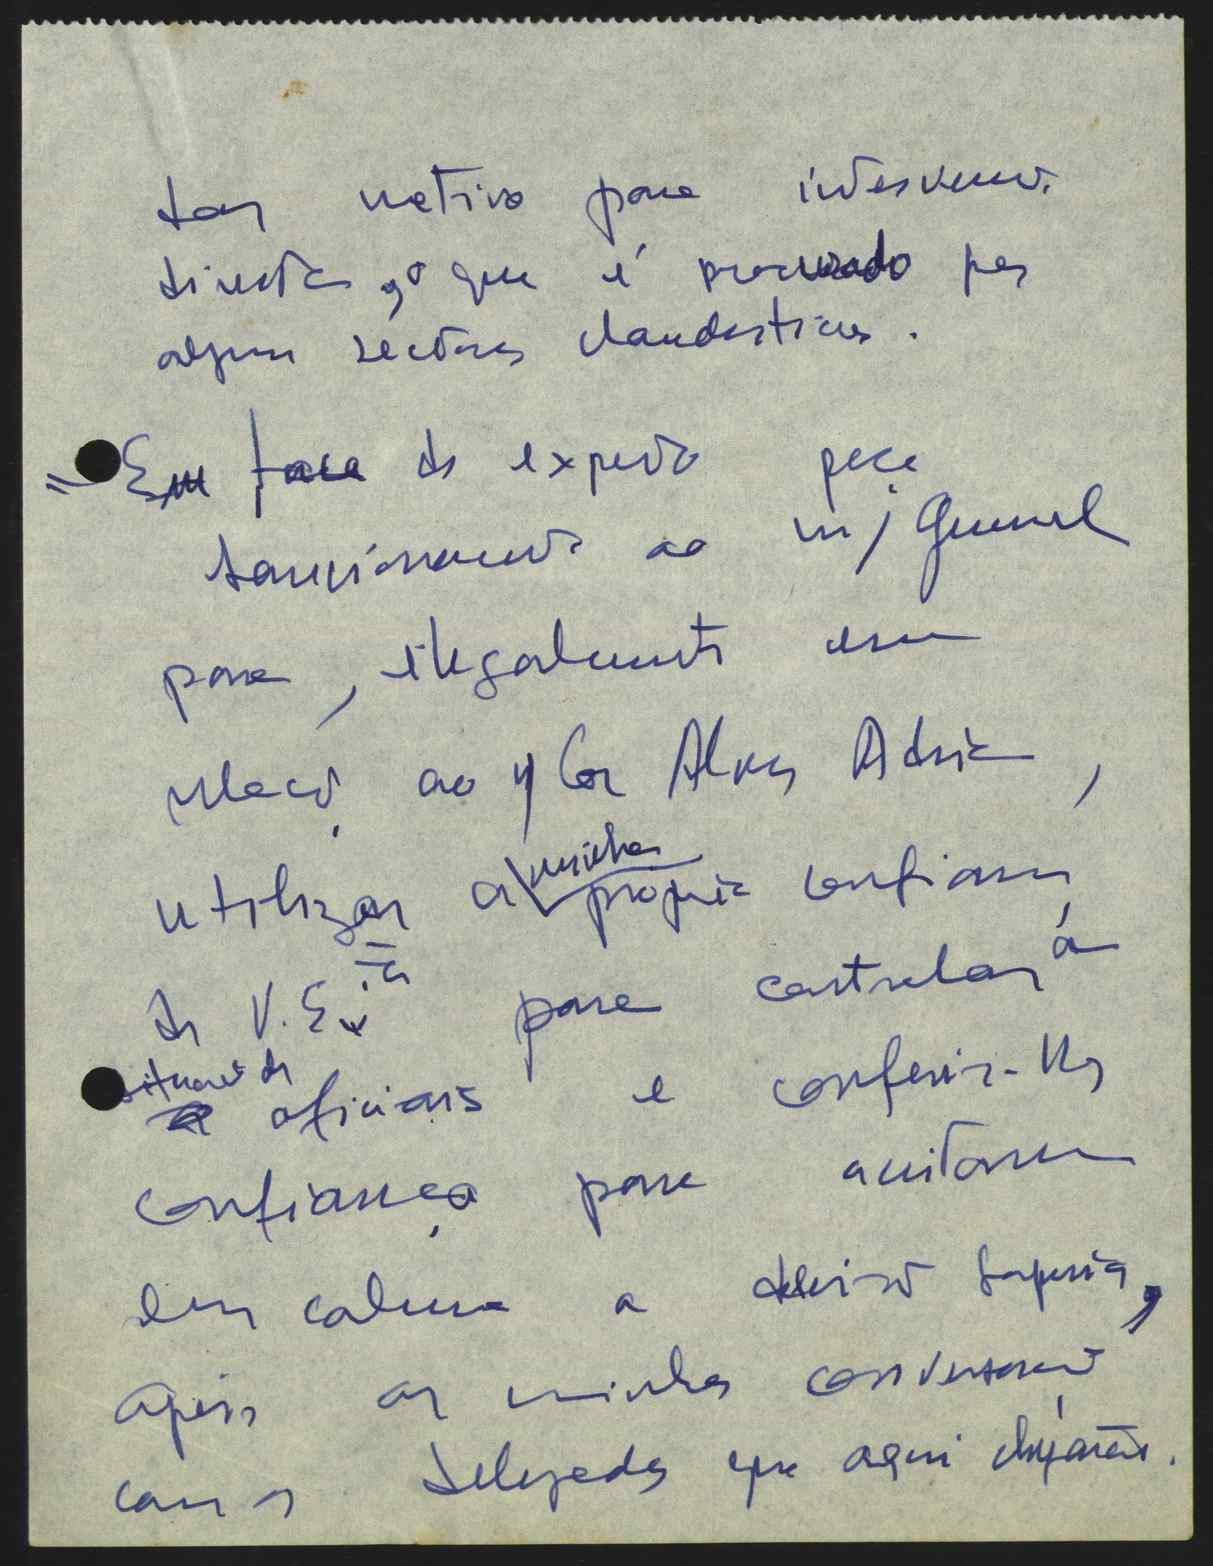 dar motivo para intervenção
directa, o que é procurado por
alguns sectores clandestinos.
= Em face do exposto peço
ao m/ General
para, em
relação ao Cor Alves
utilizar a minha própria confiança
de V. Ex.ia para controlar a
situação de oficiais e conferir-lhes
confiança para aceitarem
em calma a decisão superior,
após as minhas conversações
com os delegados que aqui chegarão.